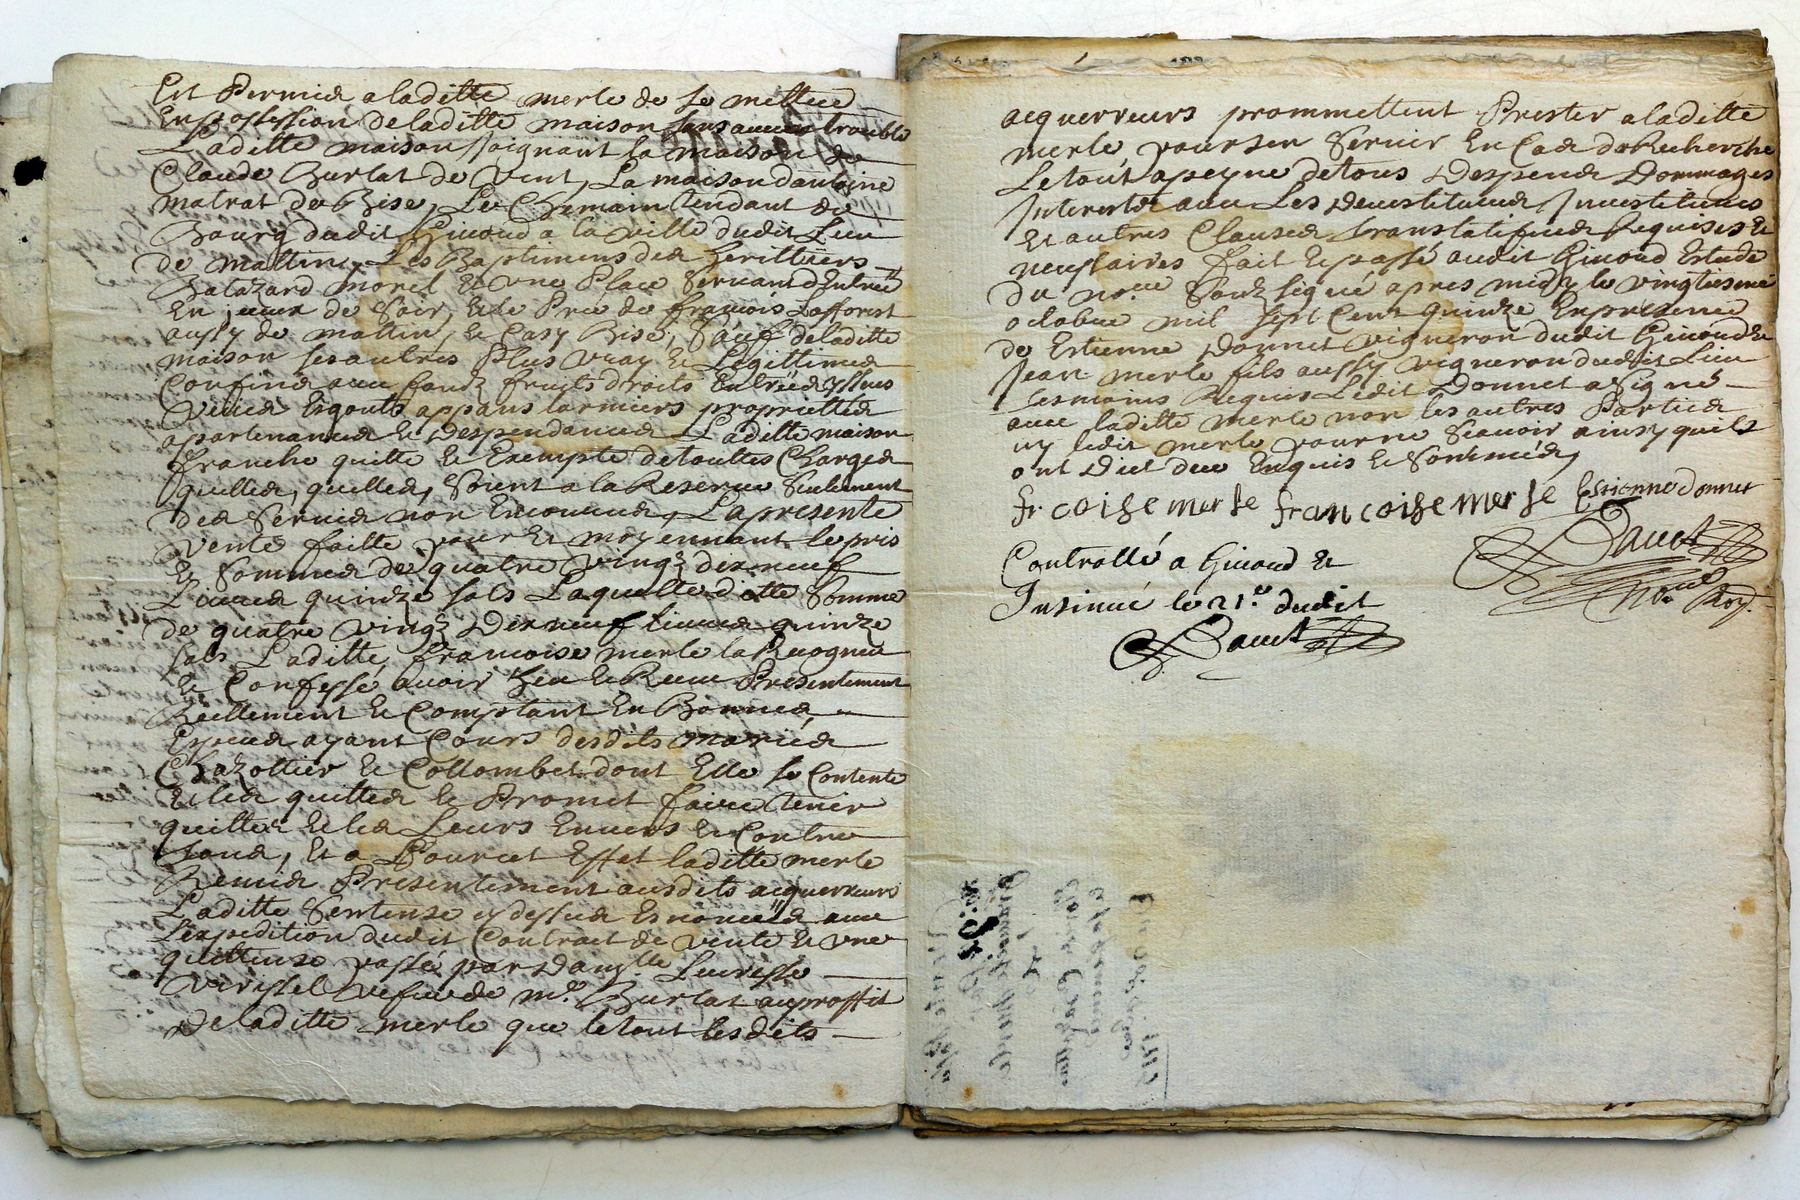 Est Permis a laditte merle de se mettre
En possession de laditte maison sans aucun trouble
Laditte maison Joignant la maison de
Claude Burlat de Vent, La maison dantoine
matrat de Bise, Le Chemain Tendant du
Bourg dudit Givord a la ville dudit Lieu
de mattin, Les Baptimens des heritiers
Balazard morel Et une Place Servant dEntrée
En jceux de Soir, Et le Pré de françois Lafforest
aussy de mattin, Et Casy Bise, Sauf de laditte
maison ses autres Plus vray Et Legittimes
Confins avec fondz fruits droits Entrées yssues
Veües Esgouts appans larmiers proprietées
apartenances Et Despendances Laditte maison
franche quitte Et Exempte de touttes Charges
quelles, quelles, Soient a la Reserve Seulement
des Servis non Encourus, La presente
vente faitte pour Et moyennant le pris
Et Somme de quatre vingz dix neuf
Livres quinze sols Laquelle ditte Somme
de quatre vingz Dix neuf Livres quinze
sols Laditte francoise merle la Recognu
Et Confessé avoir heu Et Receu Presentement
Reellement Et Comptant En Bonnes
Espesses ayant Cours desdits mariés
Chazottier Et Collombet dont Elle se Contente
Et les quittes Et Promet faire tenir
quittes Et les Leurs Envers Et Contre
tous, Et a Pourcet Effet laditte merle
Remis Presentement ausdits acquerreurs
Laditte Sentense cy dessus Esnoncée avec
L'expedition dudit Contrait de vente Et une
quittense passée par Damlle Lucresse
Verissel vefue de mr. Burlat au proffit
de laditte merle que le tout lesdits
acquerreurs prommettent Prester a laditte
merle pour sen Servir En Cas de Recherche
Le tout a peyne de tous Despens Dommages
Interests avec Les Devestitures Jnvestitures
Et autres Clauses translatives Requises Et
necessaires fait Et passé audit Givord Estude
du nore. Soubz signé apres midy le vingtiesme
octobre mil sept Cent quinze En presense
de Estienne Donnet vigneron dudit Givord Et
Jean merle fils aussy vigneron dudit Lieu
tesmoins Requis Ledit Donnet a Signé
avec laditte merle non les autres Parties
ny ledit merle pour ne Scavoir ainsy quils
ont Dict de ce Enquis Et Sommés,
fr. coise merle francoise merle Estienne donnet
Controllé a Givord Et
Insinué le 21.e dudit